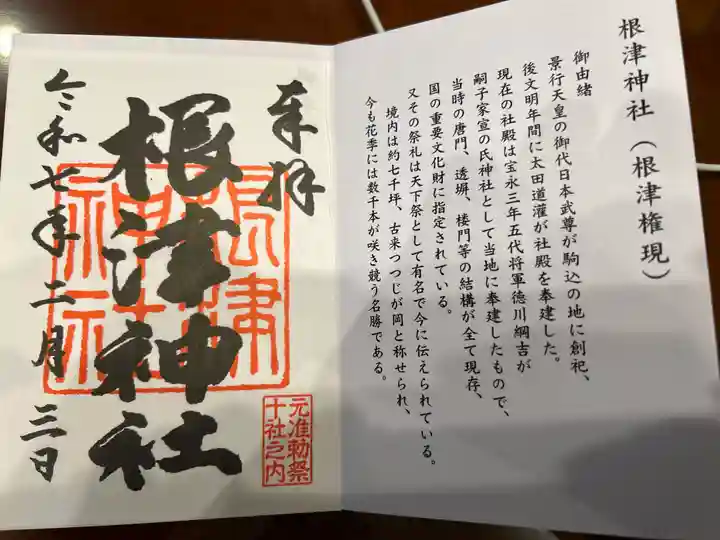 根津神社（根津権現）
御由緒
景行天皇の御代日本武尊が駒込の地に創祀、
後文明年間に太田道灌が社殿を奉建した。
現在の社殿は宝永三年五代将軍徳川綱吉が
嗣子家宣の氏神社として当地に奉建したもので、
当時の唐門、透塀、楼門等の結構が全て現存、
国の重要文化財に指定されている。
又その祭礼は天下祭として有名で今に伝えられている。
境内は約七千坪、古来つつじが岡と称せられ、
今も花季には数千本が咲き競う名勝である。
奉拝
根津神社
根津神社
元准勅祭
十社之内
令和七年二月三日